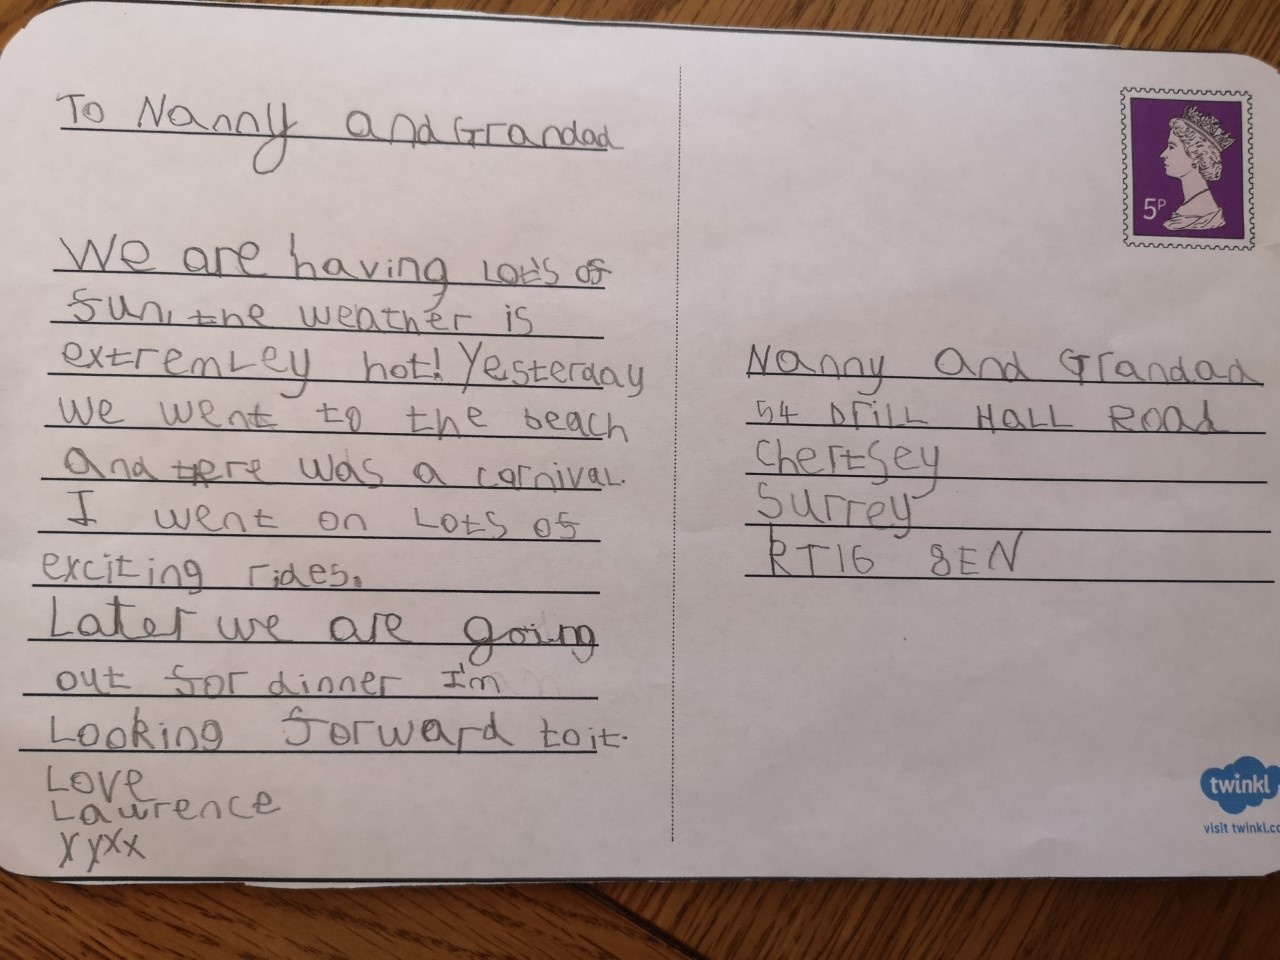 To Nanny and Grandad
We are having Lot's of
fun, the weather is
extremLey hot! Yesterday
we went to the beach
and there was a carnival.
I went on Lots of
exciting rides.
Later we are going
out for dinner I'm
Looking forward to it.
Love
Lawrence
x y x x
5P
Nanny and Grandad
54 Drill Hall Road
Chertsey
Surrey
RT16 8EN
twinkl
visit twinkl.co